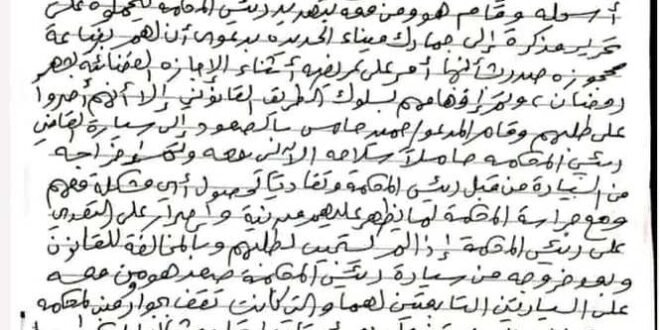 أرسله وقام هو ومن معه بتهديد رئيس المحكمة ليحملوه على
تحرير مذكرة إلى جمارك ميناء الحديدة بدعوى أن لهم بضاعة
محجوزه صدر بشأنها أمر على عريضه أثناء الإجازه القضائية بشهر
رمضان وتم إفهامهم بسلوك الطريق القانوني إلا أنهم أصروا
على طلبهم وقام المدعو/ حميد حامس بالصعود إلى سيارة القاضي
رئيس المحكمة حاملاً سلاحه الآلي معه وتم إخراجه
من السيارة من قبل رئيس المحكمة وتفادياً لحصول أي مشكلة معهم
ومع حراسة المحكمة لما يظهر عليهم من نية وإصرار على التعدي
على رئيس المحكمة إذا لم يستجيب لطلبهم وبالمخالفة للقانون
وبعد خروجه من سيارة رئيس المحكمة صعد هو ومن معه
على السيارتين التابعتين لهما والتي كانت تقف بجوار مبنى المحكمة